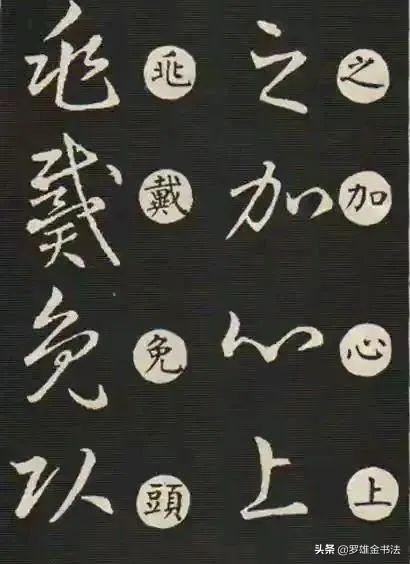 之加心上
之加心上
兆戴免頭
兆戴免頭
头条 @罗雄金书法